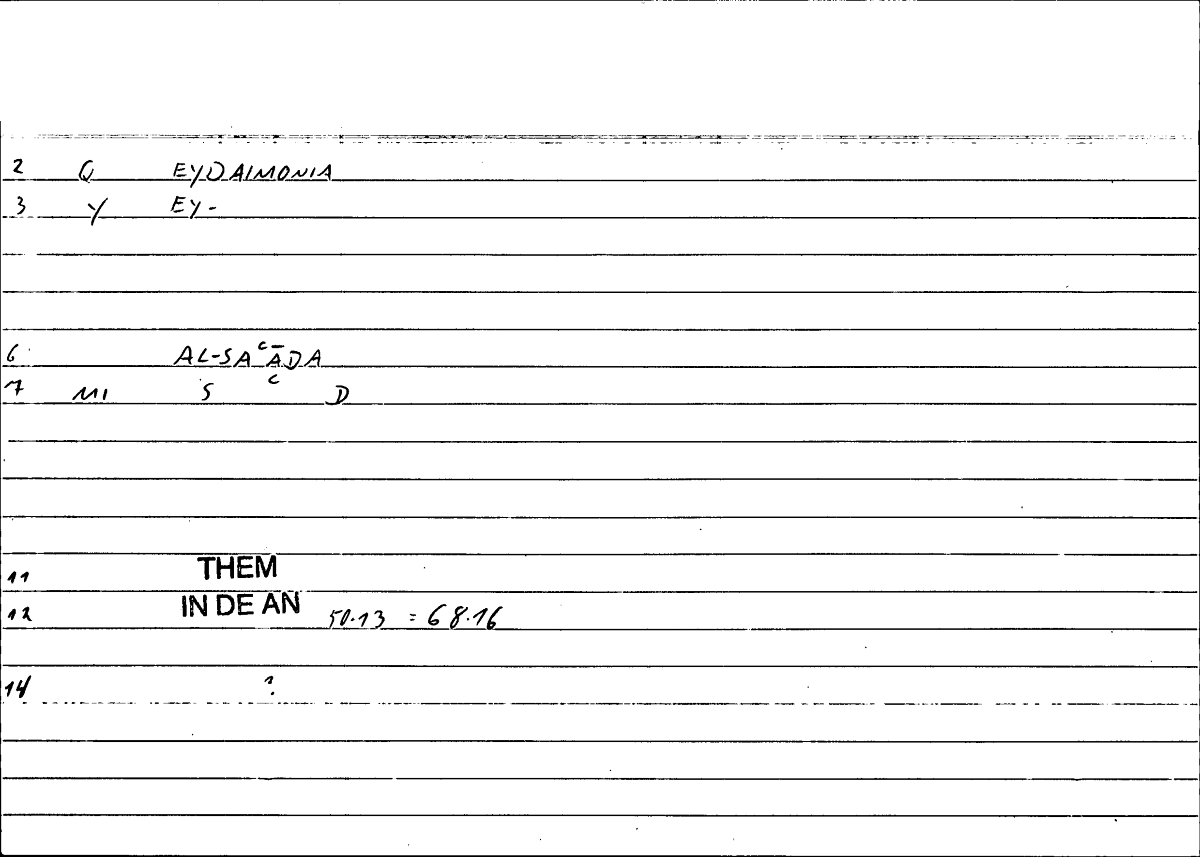 2 Q EYDAIMONIA
3 Y EY-
6 AL-SAʿĀDA
7 MI S ʿ D
11 THEM
12 IN DE AN 50.13 = 68.16
14 ?